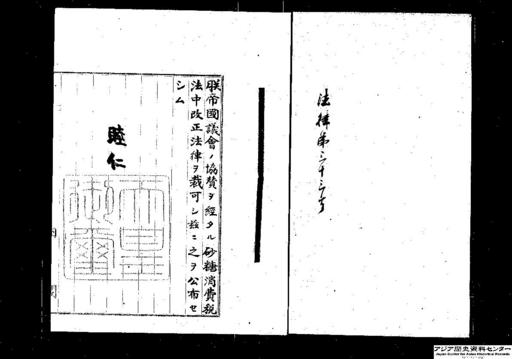 法律第三十三号
朕帝國議會ノ協賛ヲ經タル砂糖消費税
法中改正法律ヲ裁可シ茲ニ之ヲ公布セ
シム
睦仁
天皇
御璽
内閣
アジア歴史資料センター
Japan Center for Asian Historical Records